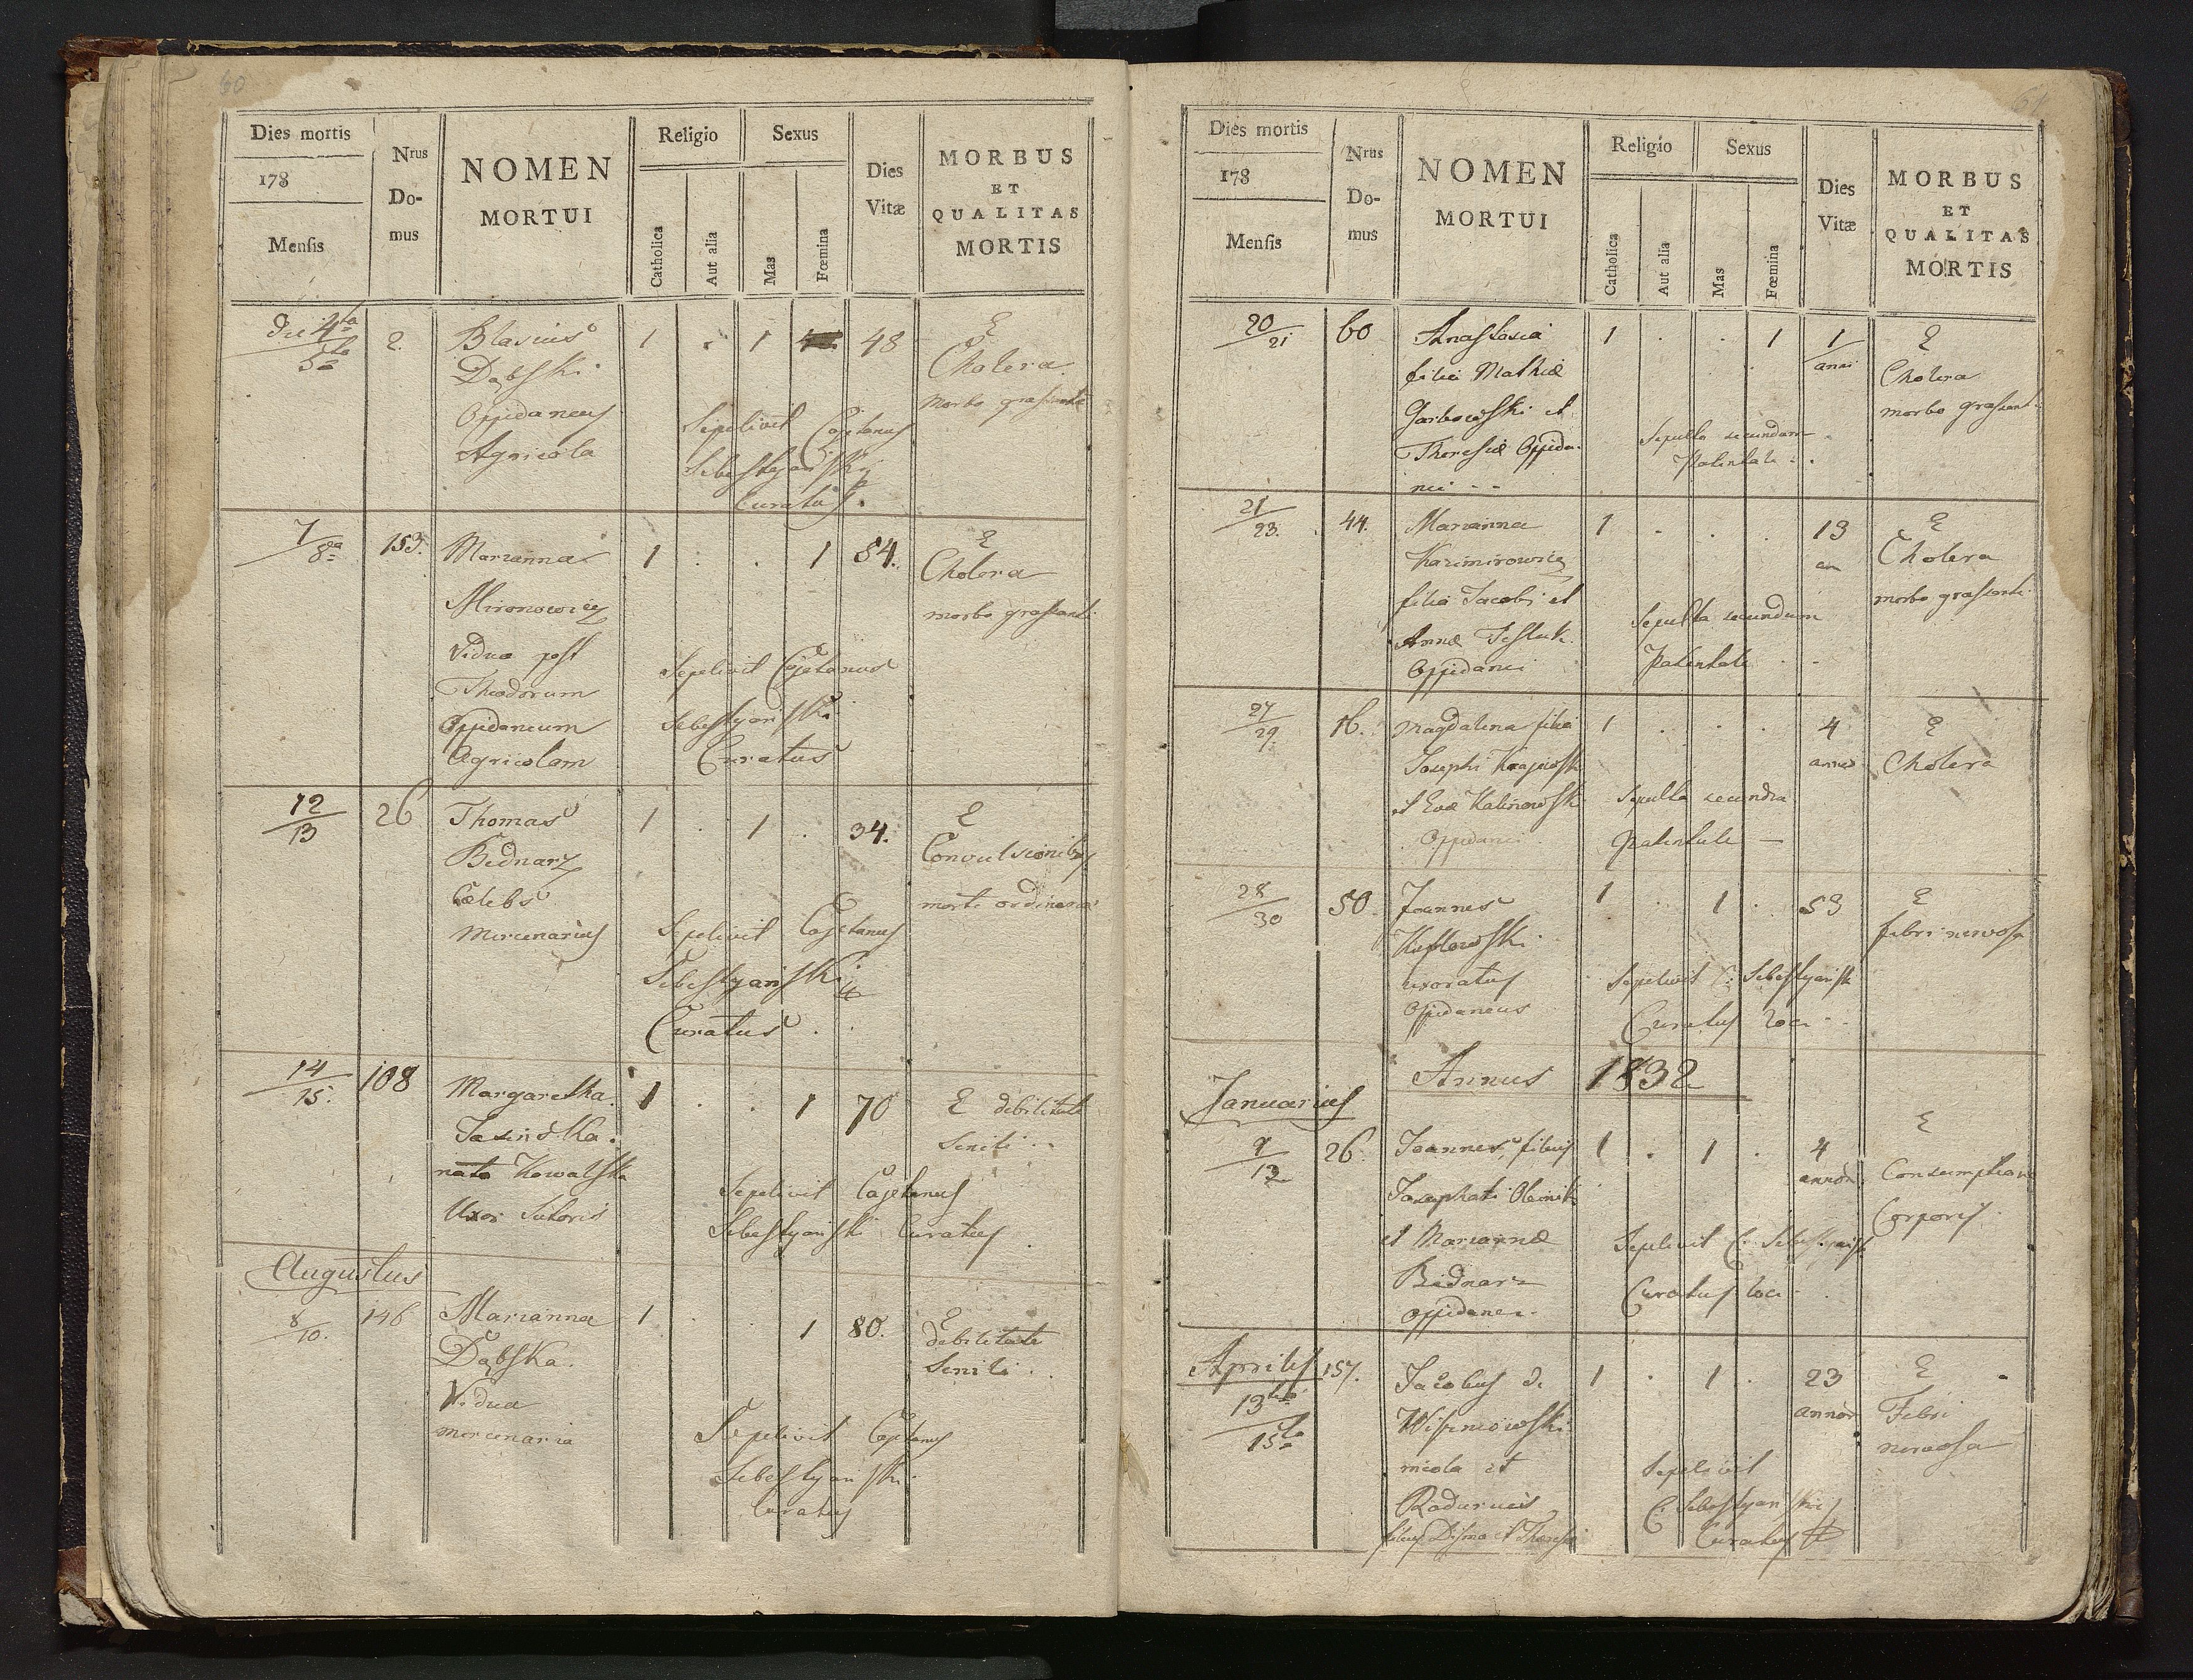 60
Dies mortis
178
Mensis
Nrus
Do-
mus
NOMEN
MORTUI
Religio
Catholica
Aut alia
Sexus
Mas
Fœmina
Dies
Vitæ
MORBUS
ET
QUALITAS
MORTIS
die 4ta
5ta
2.
Blasius
Dąbski
Oppidaneus
Agricola
1 . 1 48
E
Cholera
morbo grassante
Sepelivit Cajetanus
Sebestyański
Curatus.
7
8va
153.
Marianna
Mironowicz
vidua post
Theodorum
Oppidaneum
Agricolam
1 . . 1 54.
E
Cholera
morbo grassanti
Sepelivit Cajetanus
Sebestyański
Curatus
12
13
26
Thomas
Bednarz
Cælebs
mercenarius
1 . 1 . 34.
E
Convulsionibus
morte ordinaria
Sepelivit Cajetanus
Sebestyański
Curatus.
14
15.
108
Margaretha
Jasinska.
nata Kowalska
Uxor Sutoris
1 . . 1 70
E debilitate
Senili
Sepelivit Cajetanus
Sebestyański Curatus
Augustus
8
10.
146
Marianna
Dąbska.
Vidua
mercenaria
1 . . 1 80.
E
debilitate
Senili.
Sepelivit Cajetanus
Sebestyański
Curatus
61
Dies mortis
178
Mensis
Nrus
Do-
mus
NOMEN
MORTUI
Religio
Catholica
Aut alia
Sexus
Mas
Fœmina
Dies
Vitæ
MORBUS
ET
QUALITAS
MORTIS
20
21
60
Anastasia
filia Mathiæ
Garbowski et
Theresiæ Oppida-
nei
1 . . 1 1
anni
E
Cholera
morbo grassant.
Sepulta secundum
Patentale
21
23.
44.
Marianna
Kazimirowicz
filia Jacobi et
Annæ
Oppidanei
1 . . . 13
an
E
Cholera
morbo grassanti
Sepulta secundum
Patentale
27
29
16.
Magdalena filia
Josephi
et Evæ Kalinowski
Oppidanei
1 . . . 4
annor
E
Cholera
Sepulta secundum
Patentale
28
30
50
Joannes
Kozłowski
uxoratus
Oppidaneus
1 . 1 . 53
E
febri nervosa
Sepelivit C: Sebestyański
Curatus loci
Annus 1832
Januarius
9
12
26.
Joannes, filius
Josaphati Oleinik
et Mariannæ
Bednarz
oppidanei
1 . 1 . 4
annor
E
Consumptione
Corporis
Sepelivit C. Sebestyański
Curatus loci
Aprilis
13tia
15ta
157.
Jacobus d.
Wiszniowski
incola et
Radurneis
filius Disma et Theresia
1 . 1 . 23
annor
E
Febri
nervosa
Sepelivit
C. Sebestyański
Curatus